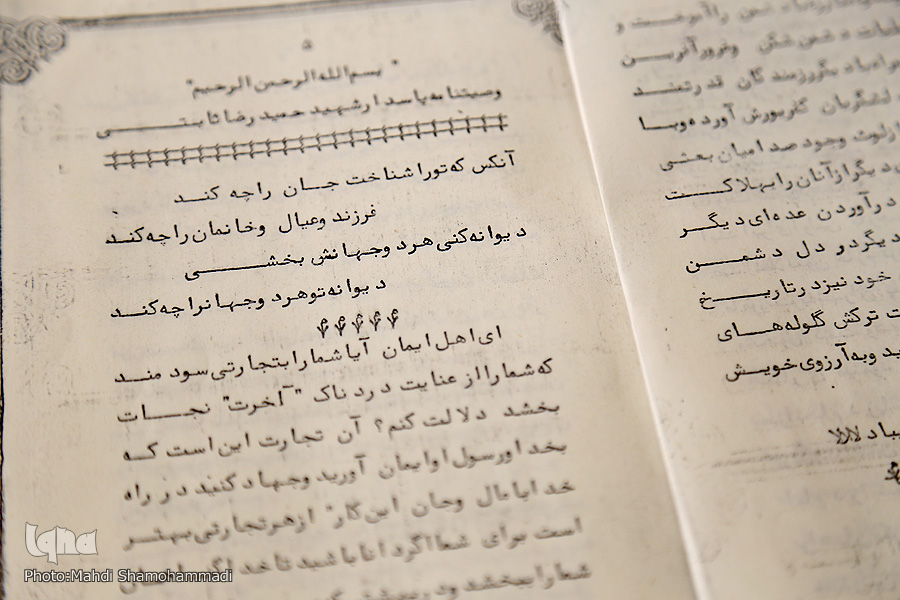 ۵
"بسم الله الرحمن الرحیم"
وصیتنامه پاسدار شهید حمید رضا ثابتی
آنکس که تورا شناخت جان را چه کند
فرزند و عیال و خانمان را چه کند
دیوانه کنی هر دو جهانش بخشی
دیوانه تو هر دو جهانرا چه کند
ای اهل ایمان آیا شما را بتجارتی سود مند
که شما را از عنایت دردناک "آخرت" نجات
بخشد دلالت کنم؟ آن تجارت این است که
بخدا و رسول او ایمان آورید و جهاد کنید در راه
خدا با مال و جان این کار" از هر تجارتی بهتر
است برای شما اگر دانا باشید تا خدا
شما را ببخشد و در
و راآموخت
دشمن شکن وغرور آفرین
رزمندگان قدرتمند
لشگریان کفر یورش آورده و با
از لوث وجود صدامیان بعثی
دیگر از آنان را بهلاکت
درآوردن عده‌ای دیگر
دیگر در دل دشمن
خود نیز در تاریخ
ترکش گلوله‌های
وبه آرزوی خویش
باد لالا
Iqna
Photo:Mahdi Shamohammadi